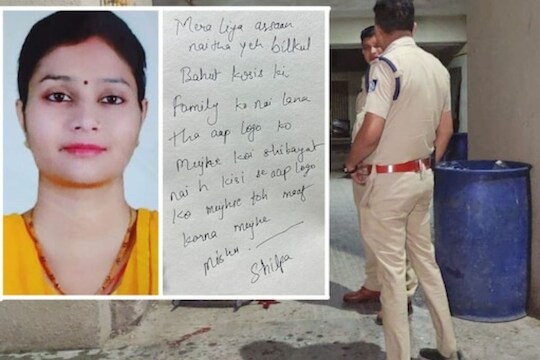 Mera liya assaan
naitha yeh bilkul
Bahut kosis ki
family ko nai lana
tha aap logo ko
mujhe koi shikayat
nai h kisi se aap logo
ko mujhse toh maaf
karna mujhe
Mishu
Shilpa